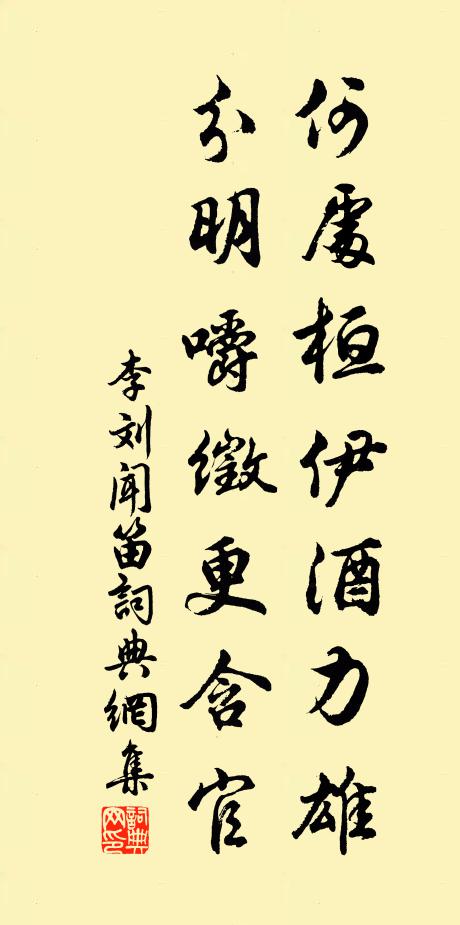 何處桓伊酒力雄
分明嚼徵更含官
李刘闻笛詞典網集
詞典网印